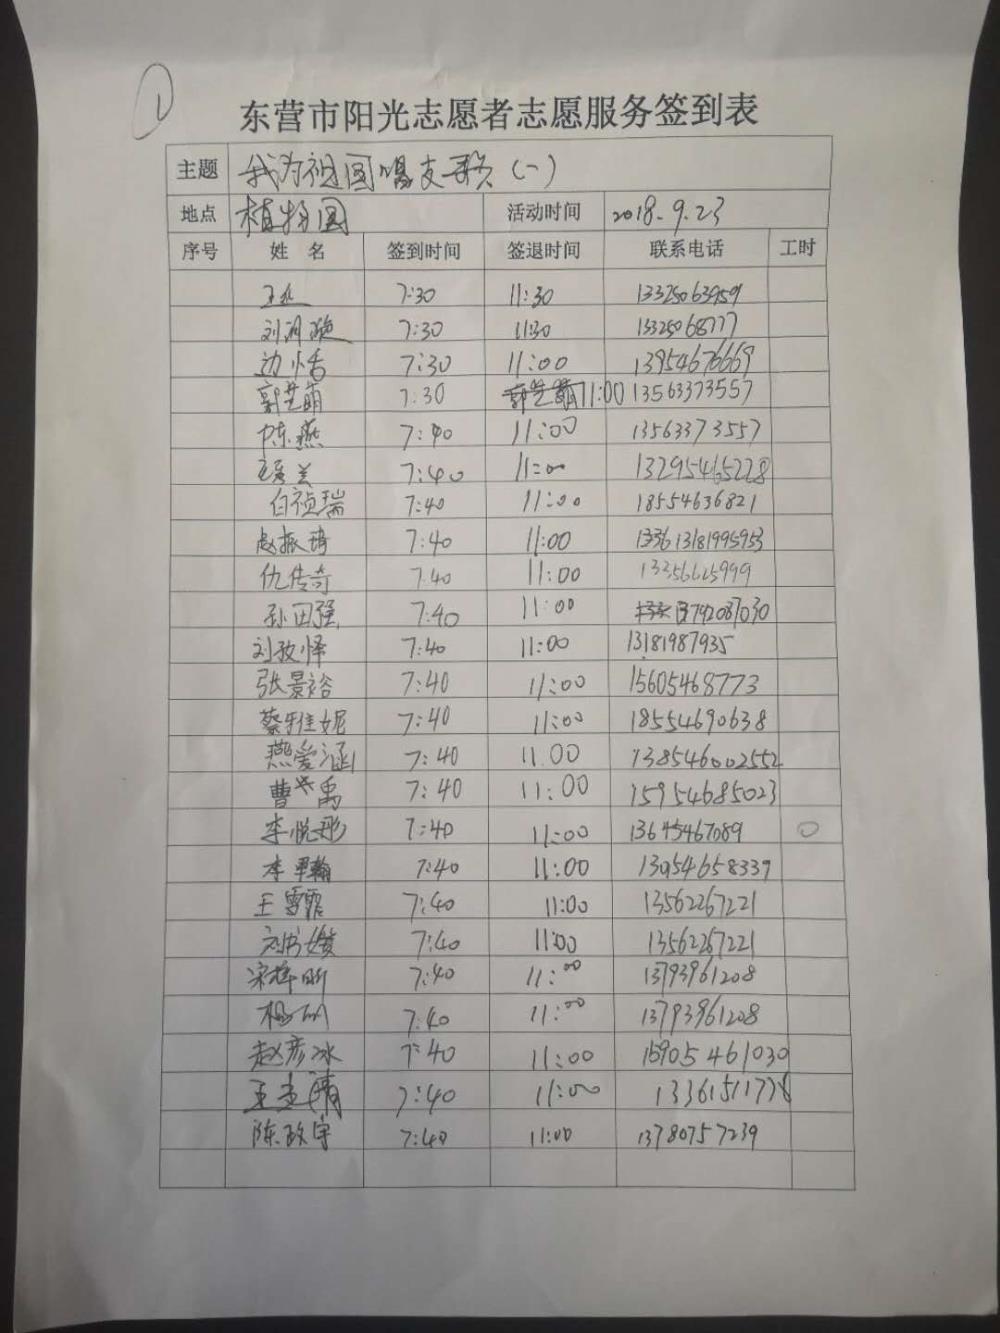 1
东营市阳光志愿者志愿服务签到表
主题 我为祖国唱支歌(一)
地点 植物园 活动时间 2018.9.23
序号 姓名 签到时间 签退时间 联系电话 工时
7:30 11:30 13325063959
刘润璇 7:30 11:30 15325068777
边小香 7:30 11:00 13954676669
郭芝萌 7:30 11:00 13563373557
陈燕 7:40 11:00 13563373557
7:40 11:00 13295465228
白祯瑞 7:40 11:00 18554636821
赵振琦 7:40 11:00 13181995953
仇传奇 7:40 11:00 13356625999
孙田强 7:40 11:00 13792087030
刘孜怿 7:40 11:00 13181987935
张景裕 7:40 11:00 15605468773
蔡雅妮 7:40 11:00 18554690638
燕爱涵 7:40 11.00 138546002552
曹 禹 7:40 11:00 15954685023
李悦彤 7:40 11:00 13645467089
李 翰 7:40 11:00 13054658339
王雪霏 7:40 11:00 13562267221
刘书媛 7:40 11:00 13562267221
宋梓昕 7:40 11:00 13793961208
杨 7:40 11:00 13793961208
赵彦冰 7:40 11:00 15905461030
王孟清 7:40 11:00
陈政宇 7:40 11:00 13780757239